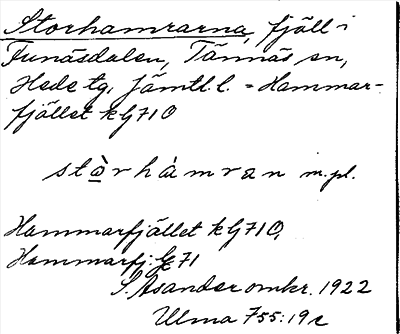 Storhamrarna, fjäll i
Funäsdalen, Tännäs sn,
Hede tg, Jämtl. l. = Hammar-
fjället k G 71 O
stòrhàmran m.pl.
Hammarfjället k G 71 O,
Hammarfj: G€ 71
S. Asander omkr. 1922
Ulma 755:19c